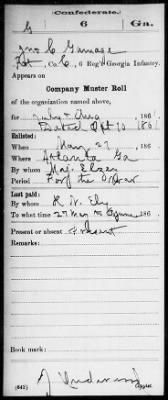 Confederate.
G 6 Ga.
Jno C Gamage
Pvt, Co. C, 6 Reg't Georgia Infantry.
Appears on
Company Muster Roll
of the organization named above,
for July & Aug, 186
dated Sept 10, 1861
Enlisted:
When May 27, 186
Where Atlanta Ga
By whom Maj. Elzey
Period For the War
Last paid:
By whom
To what time 27 May, 186
Present or absent Present
Remarks:
Book mark:
(642) Copyist.